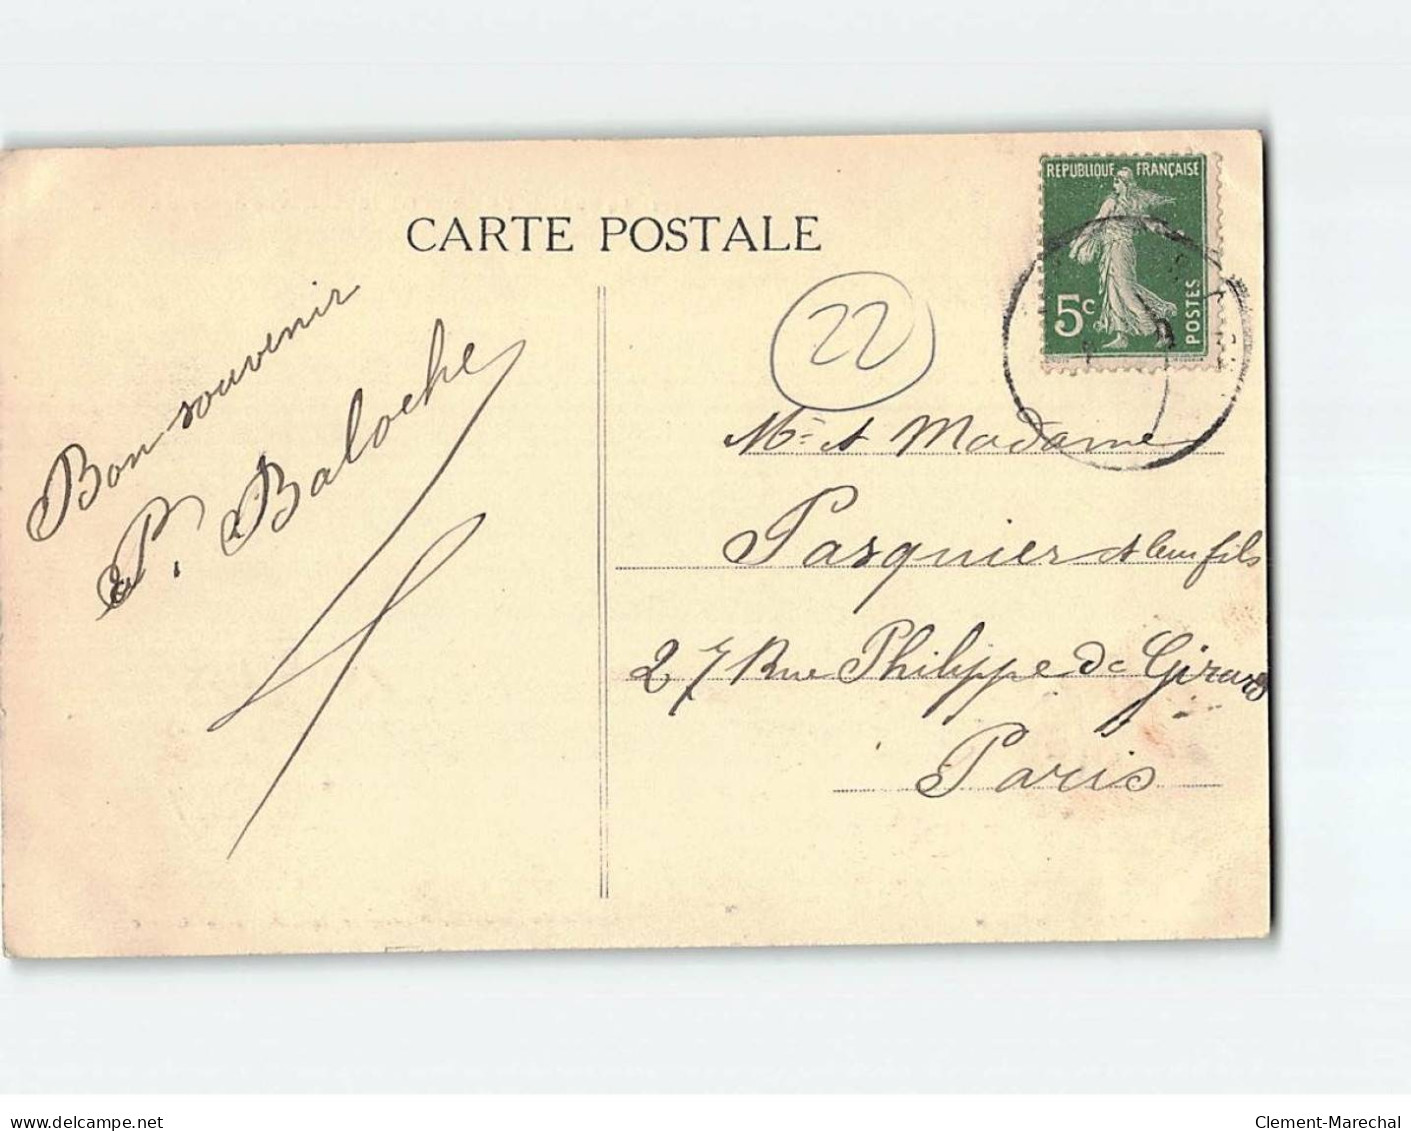 REPUBLIQUE FRANÇAISE
5c
POSTES
CARTE POSTALE
22
Bon souvenir
P. Baloche
Mr et Madame
Pasquier et leur fils
27 Rue Philippe de Girard
Paris
delcampe.net
Clement-Marechal